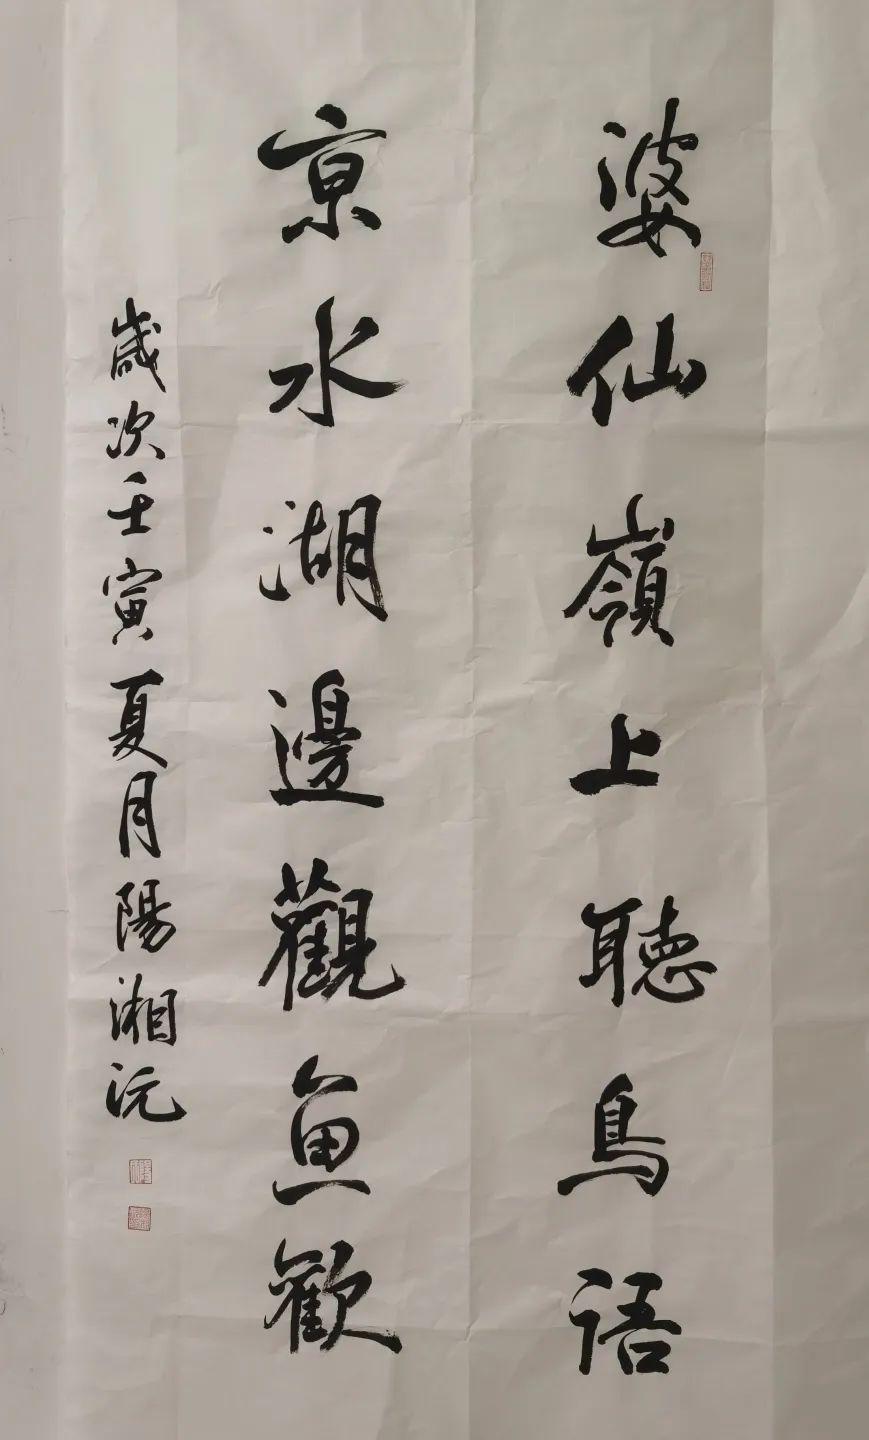 婆仙嶺上聴鳥语
京水湖邊觀鱼歡
歲次壬寅夏月陽湘沅